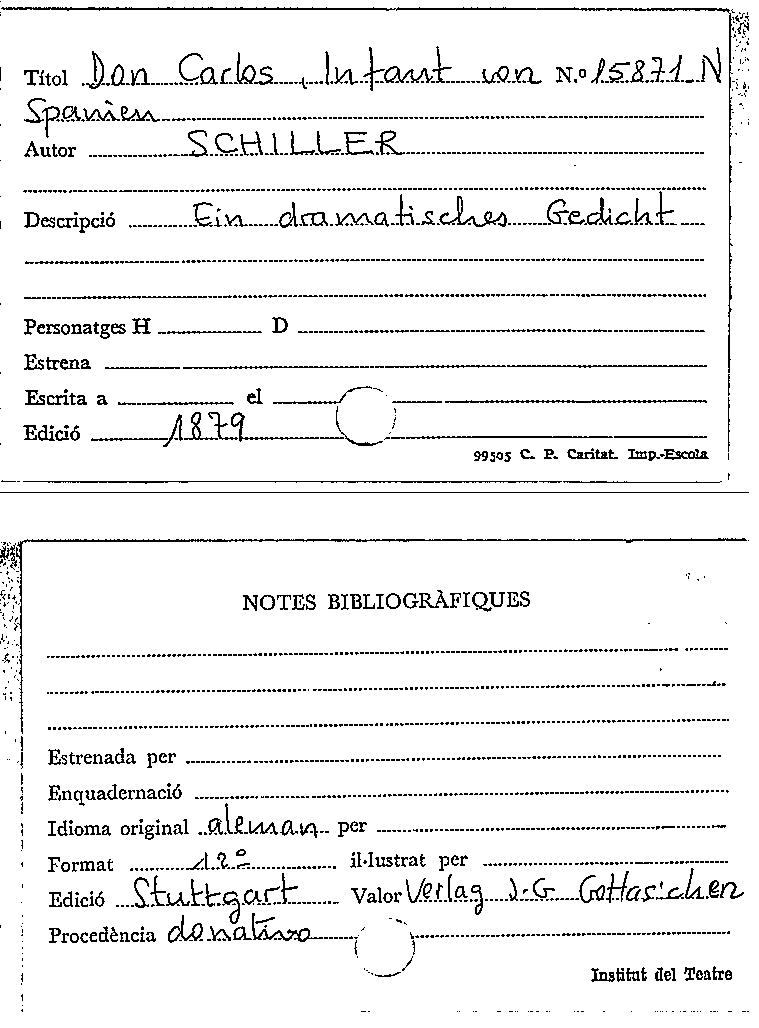 Títol Don Carlos, Infant von N.º 15871 N
Spanien
Autor SCHILLER
Descripció Ein dramatisches Gedicht
Personatges H D
Estrena
Escrita a el
Edició 1879
99505 C. P. Caritat. Imp.-Escola
NOTES BIBLIOGRÀFIQUES
Estrenada per
Enquadernació
Idioma original aleman per
Format 12º il·lustrat per
Edició Stuttgart Valor Verlag J.G Gottas'chen
Procedència donativo
Institut del Teatre